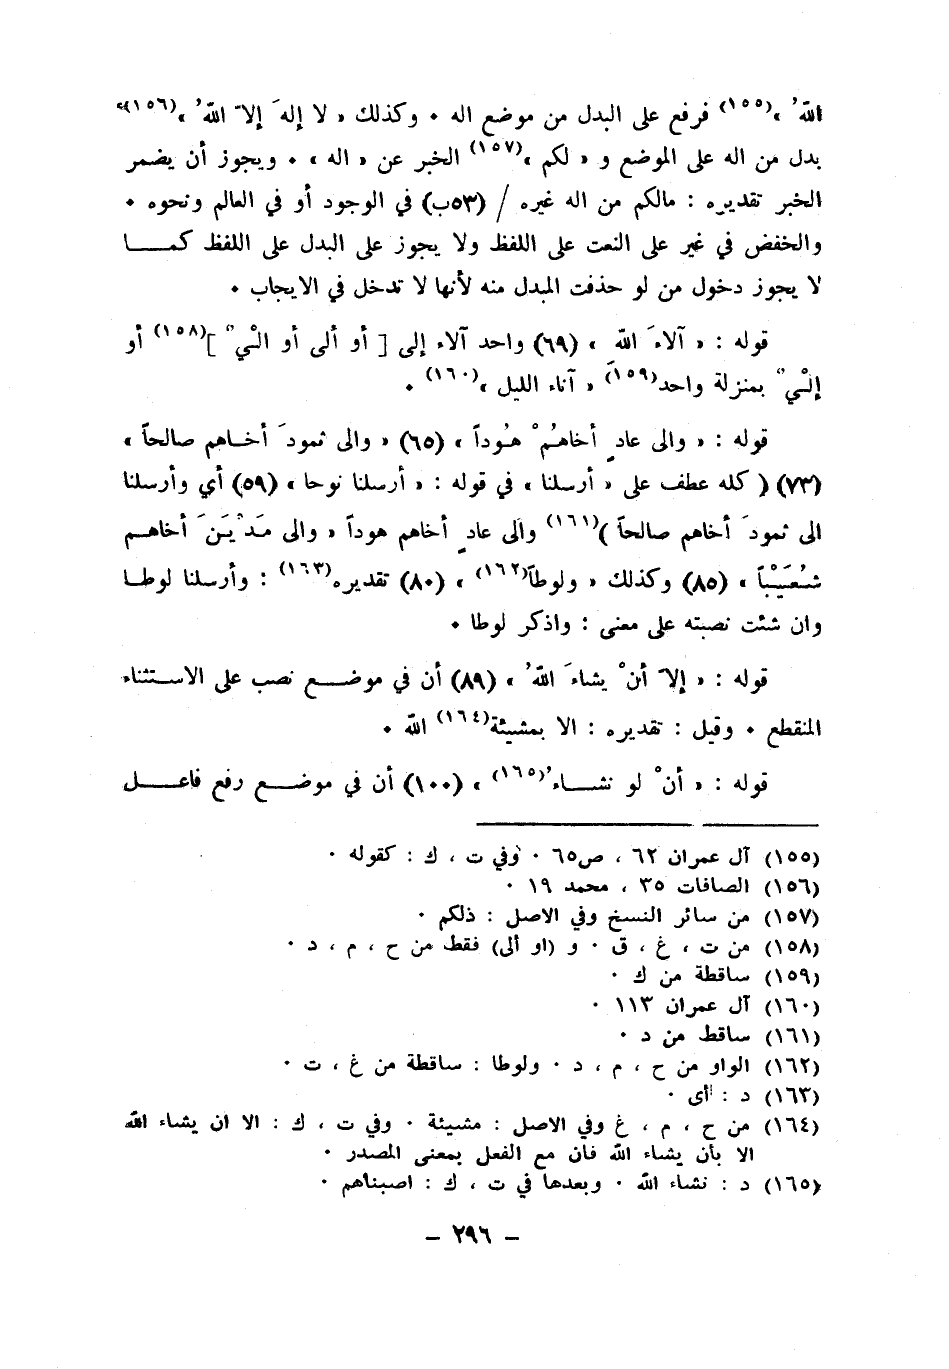 اللهُ »(١٥٥) فرفع على البدل من موضع اله ٠ وكذلك « لا إلهَ إلاّ اللهُ »(١٥٦)
بدل من اله على الموضع و « لكم »(١٥٧) الخبر عن « اله » ٠ ويجوز أن يضمر
الخبر تقديره : مالكم من اله غيره / (٥٣ب) في الوجود أو في العالم ونحوه ٠
والخفض في غير على النعت على اللفظ ولا يجوز على البدل على اللفظ كمـــا
لا يجوز دخول من لو حذفت المبدل منه لأنها لا تدخل في الايجاب ٠
قوله : « آلاءَ اللهِ » (٦٩) واحد آلاء إلى [ أو ألى أو الْيٌ ](١٥٨) أو
إلْيٌ بمنزلة واحد(١٥٩) « آناءَ الليل »(١٦٠) ٠
قوله : « والى عادٍ أخاهُمْ هُوداً » (٦٥) « والى ثمودَ أخـاهم صالحاً »
(٧٣) ( كله عطف على « أرسلنا » في قوله : « أرسلنا نوحا » (٥٩) أي وأرسلنا
الى ثمودَ أخاهم صالحاً )(١٦١) والى عادٍ أخاهم هوداً « والى مَدْيَنَ أخاهـم
شُعَيْباً » (٨٥) وكذلك « ولوطاً(١٦٢) » (٨٠) تقديره(١٦٣) : وأرسلنا لوطـا
وان شئت نصبته على معنى : واذكر لوطا ٠
قوله : « إلاّ أنْ يشاءَ اللهُ » (٨٩) أن في موضـــع نصب على الاســتثناء
المنقطع ٠ وقيل : تقديره : الا بمشيئة(١٦٤) الله ٠
قوله : « أنْ لو نشـــاءُ(١٦٥) » (١٠٠) أن في موضـــع رفع فاعـــل
(١٥٥) آل عمران ٦٢ ، ص٦٥ ٠ وفي ت ، ك : كقوله ٠
(١٥٦) الصافات ٣٥ ، محمد ١٩ ٠
(١٥٧) من سائر النسخ وفي الاصل : ذلكم ٠
(١٥٨) من ت ، غ ، ق ٠ و (او ألى) فقط من ح ، م ، د ٠
(١٥٩) ساقطة من ك ٠
(١٦٠) آل عمران ١١٣ ٠
(١٦١) ساقط من د ٠
(١٦٢) الواو من ح ، م ، د ٠ ولوطا : ساقطة من غ ، ت ٠
(١٦٣) د : أى ٠
(١٦٤) من ح ، م ، غ وفي الاصل : مشيئة ٠ وفي ت ، ك : الا ان يشاء الله
الا بأن يشاء الله فان مع الفعل بمعنى المصدر ٠
(١٦٥) د : نشاء الله ٠ وبعدها في ت ، ك : اصبناهم ٠
– ٢٩٦ –